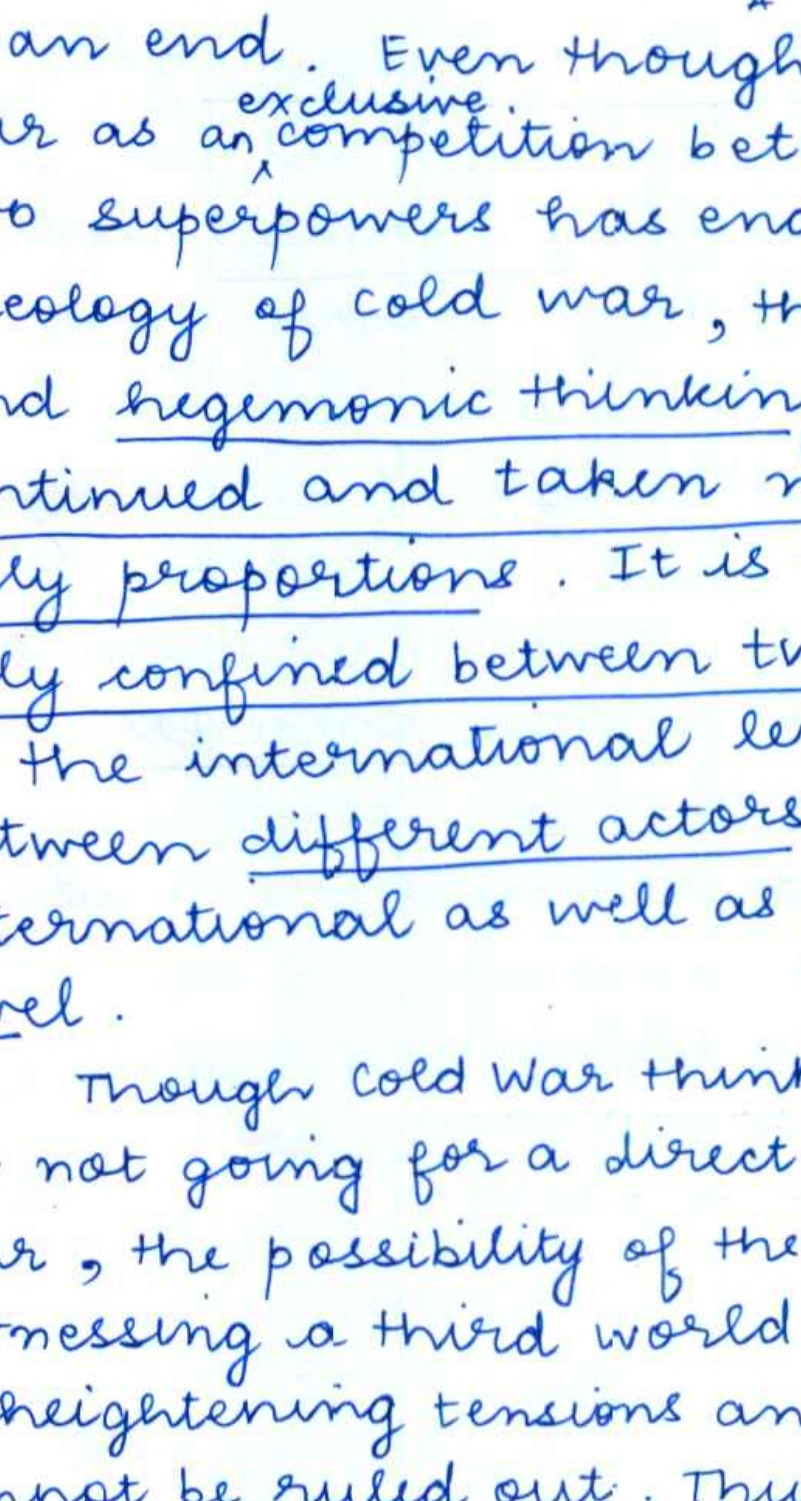 an end. Even though
ur as an exclusive competition bet
o superpowers has end
eology of cold war, th
nd hegemonic thinkin
ntinued and taken n
ly proportions. It is
ly confined between tw
the international le
tween different actors
ternational as well as
vel.
Though Cold War think
not going for a direct
ar, the possibility of the
nessing a third world
heightening tensions an
nnot be ruled out. Thu